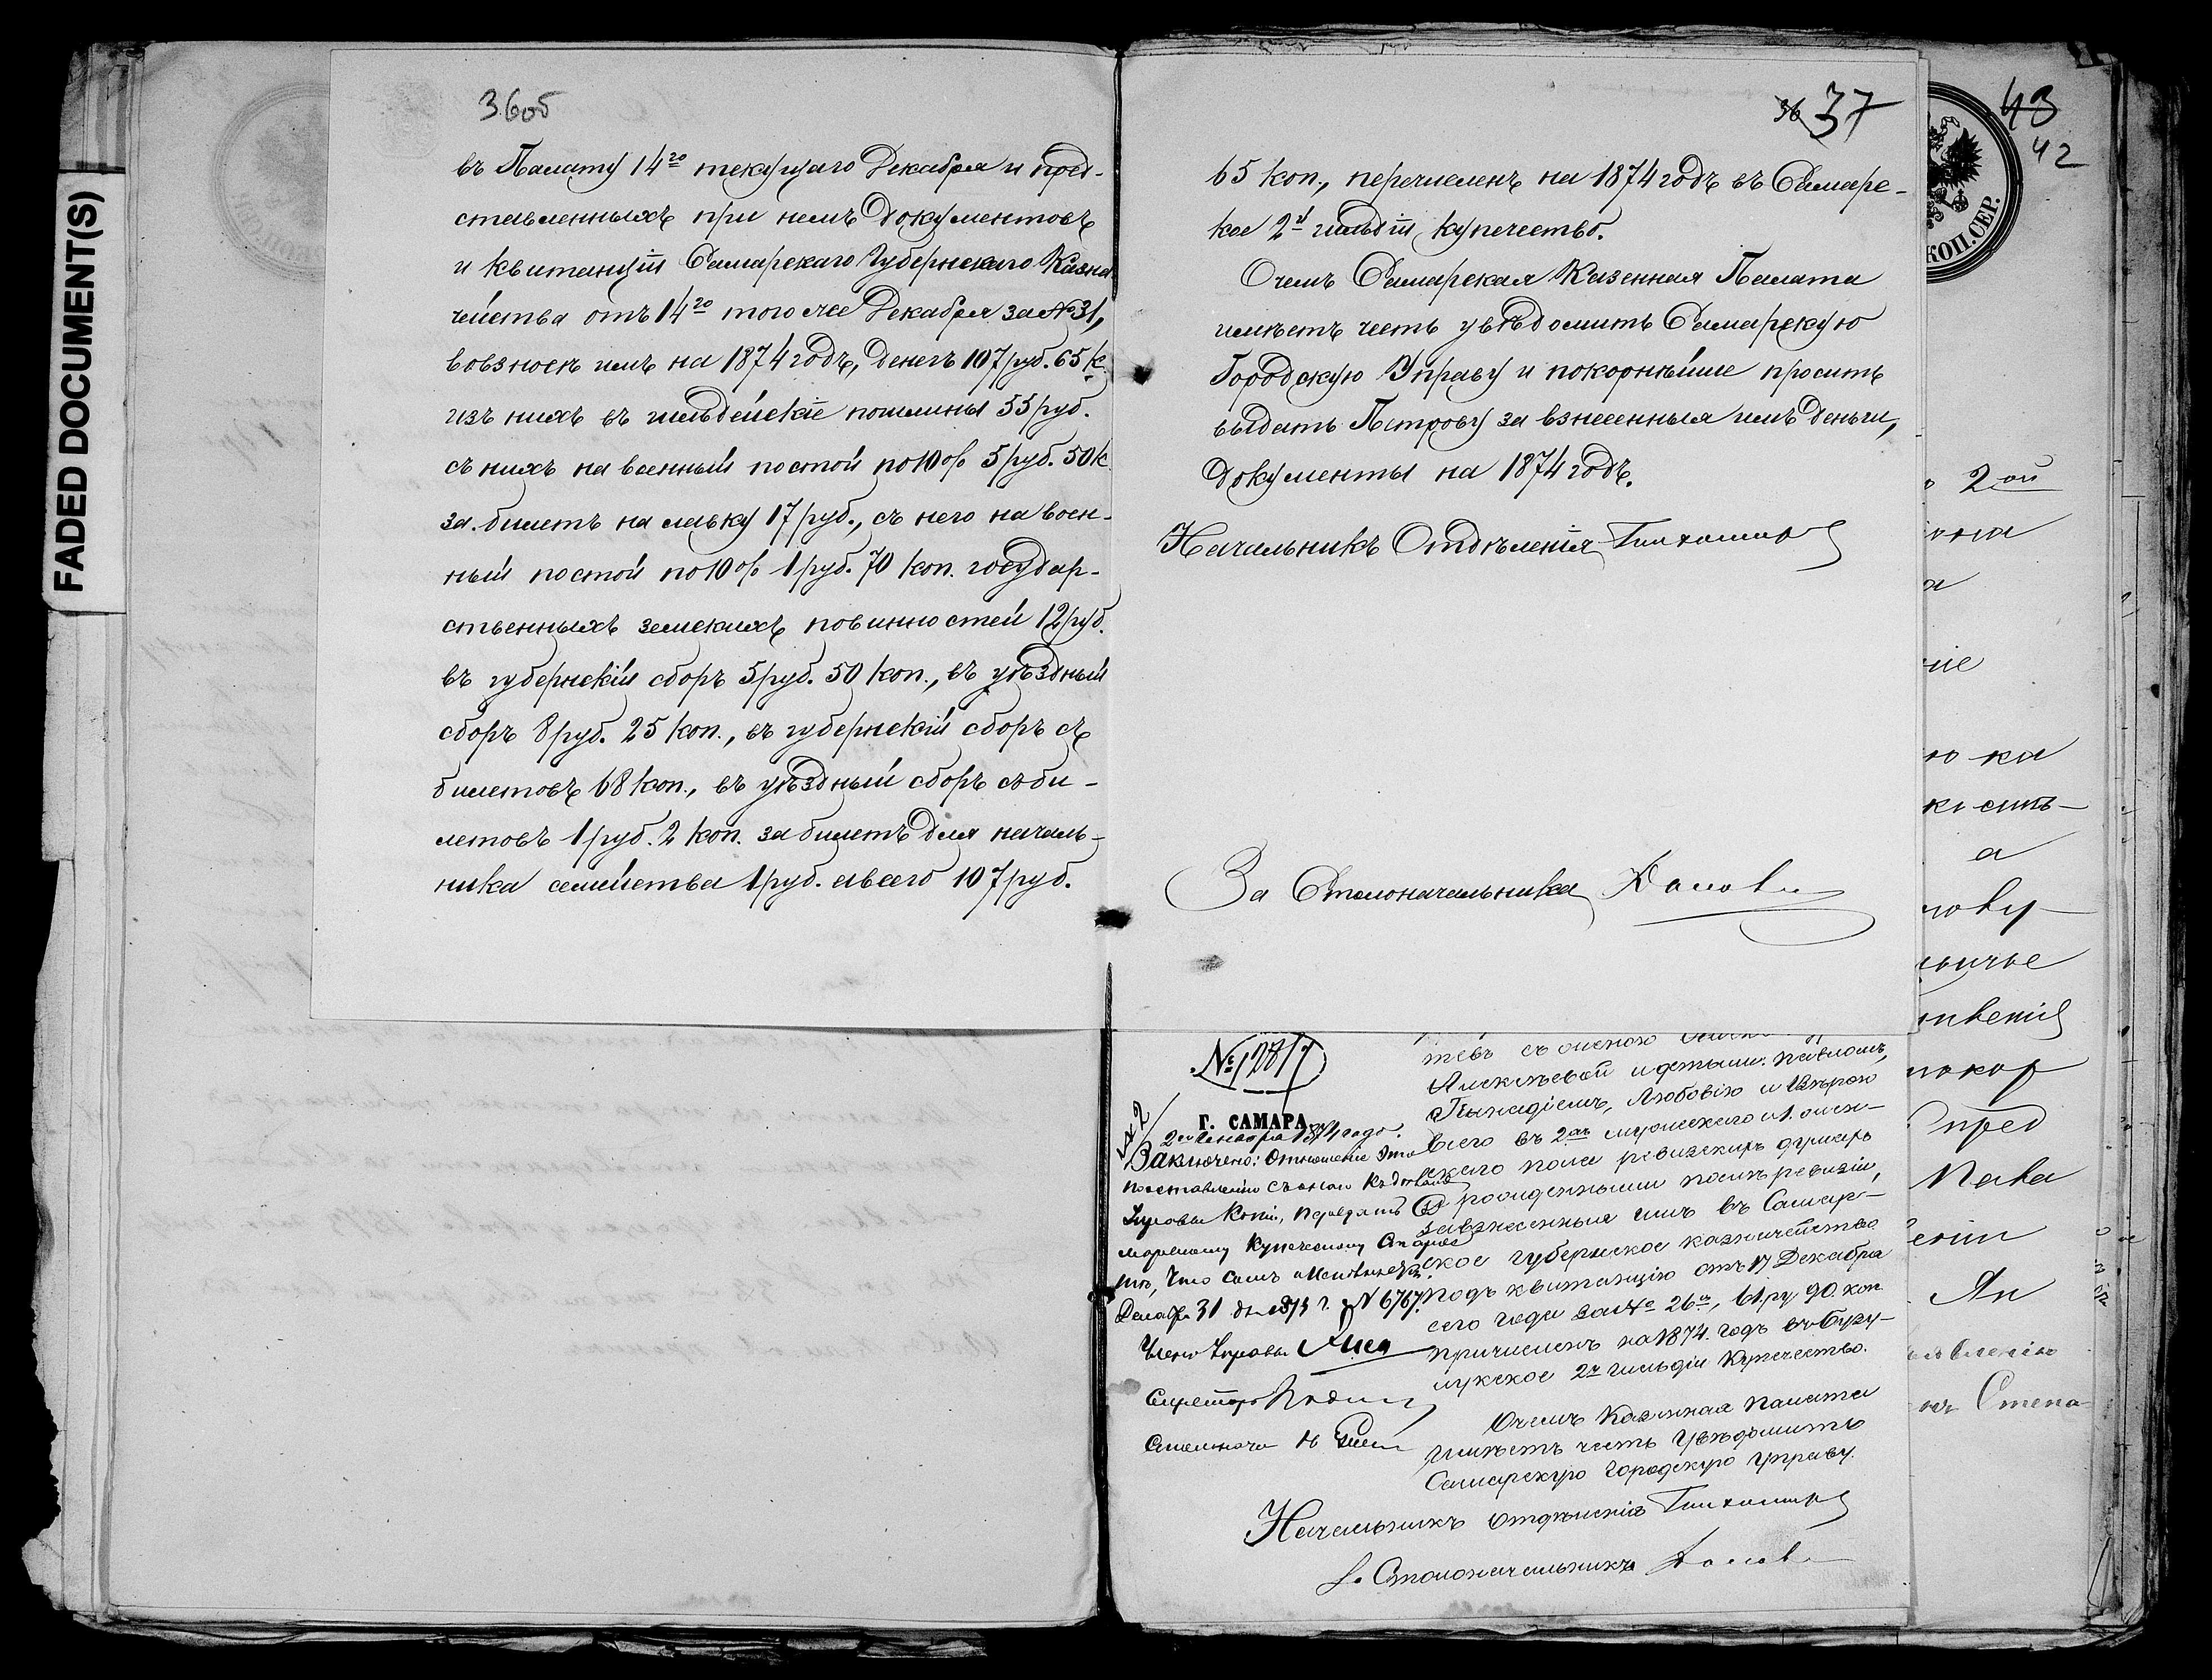 FADED DOCUMENT(S)
36об
въ Палату 14го текущаго Декабря и пред-
ставленныхъ при немъ документовъ
и квитанціи Самарскаго Губернскаго Казна
чейства отъ 14го того же Декабря за №31,
во взносъ имъ на 1874 годъ, денегъ 107 руб. 65 к.
изъ нихъ въ гильдейскіе пошлины 55 руб.
съ нихъ на военный постой по 10% 5 руб. 50 к.
за билетъ на лавку 17 руб., съ него на воен-
ный постой по 10% 1 руб. 70 коп. государ-
ственныхъ земскихъ повинностей 12 руб.
въ губернскій сборъ 5 руб. 50 коп., въ уѣздный
сборъ 8 руб. 25 коп., въ губернскій сборъ съ
билетовъ 68 коп., въ уѣздный сборъ съ би-
летовъ 1 руб. 2 коп. за билетъ для началь-
ника семейства 1 руб. а всего 107 руб.
36 37
65 коп., перечисленъ на 1874 годъ въ Самарс-
кое 2й гильдіи купечество.
О чемъ Самарская Казенная Палата
имѣетъ честь увѣдомить Самарскую
Городскую Управу и покорнѣйше просить
выдать Петрову за взнесенныя имъ деньги,
документы на 1874 годъ.
Начальникъ Отдѣленія Тихомиров
За Столоначальника
№ 12817
Г. САМАРА
2го Января 1874 года.
Заключено: Отношеніе это
по оставленіи съ онаго къ дѣламъ
Управы Копіи, передать
Купеческому Старос
тѣ, что симъ и исполняется.
Декабр 31 дня 1873 г. № 6767.
Членъ Управы
Секретарь
Алексѣевой и дѣтьми: Павломъ,
Геннадіемъ, Любовію и Вѣрою
всего въ 2хъ мужескаго и 1. жен-
скаго пола ревизскихъ душахъ
рожденными послѣ ревизіи,
за взнесенныя имъ въ Самар-
ское губернское казначейство
подъ квитанцію отъ 17 Декабря
сего года за № 26м, 61. ру 90. коп
причисленъ на 1874. годъ въ Бузу-
лукское 2й гильдіи купечество.
О чемъ Казенная Палата
имѣетъ честь увѣдомить
Самарскую Городскую Управу.
Начальникъ Отдѣленія Тихомиров
Столоначальникъ
43
42
КОП. СЕР.
2ой
покор
пред
Пава
Степа